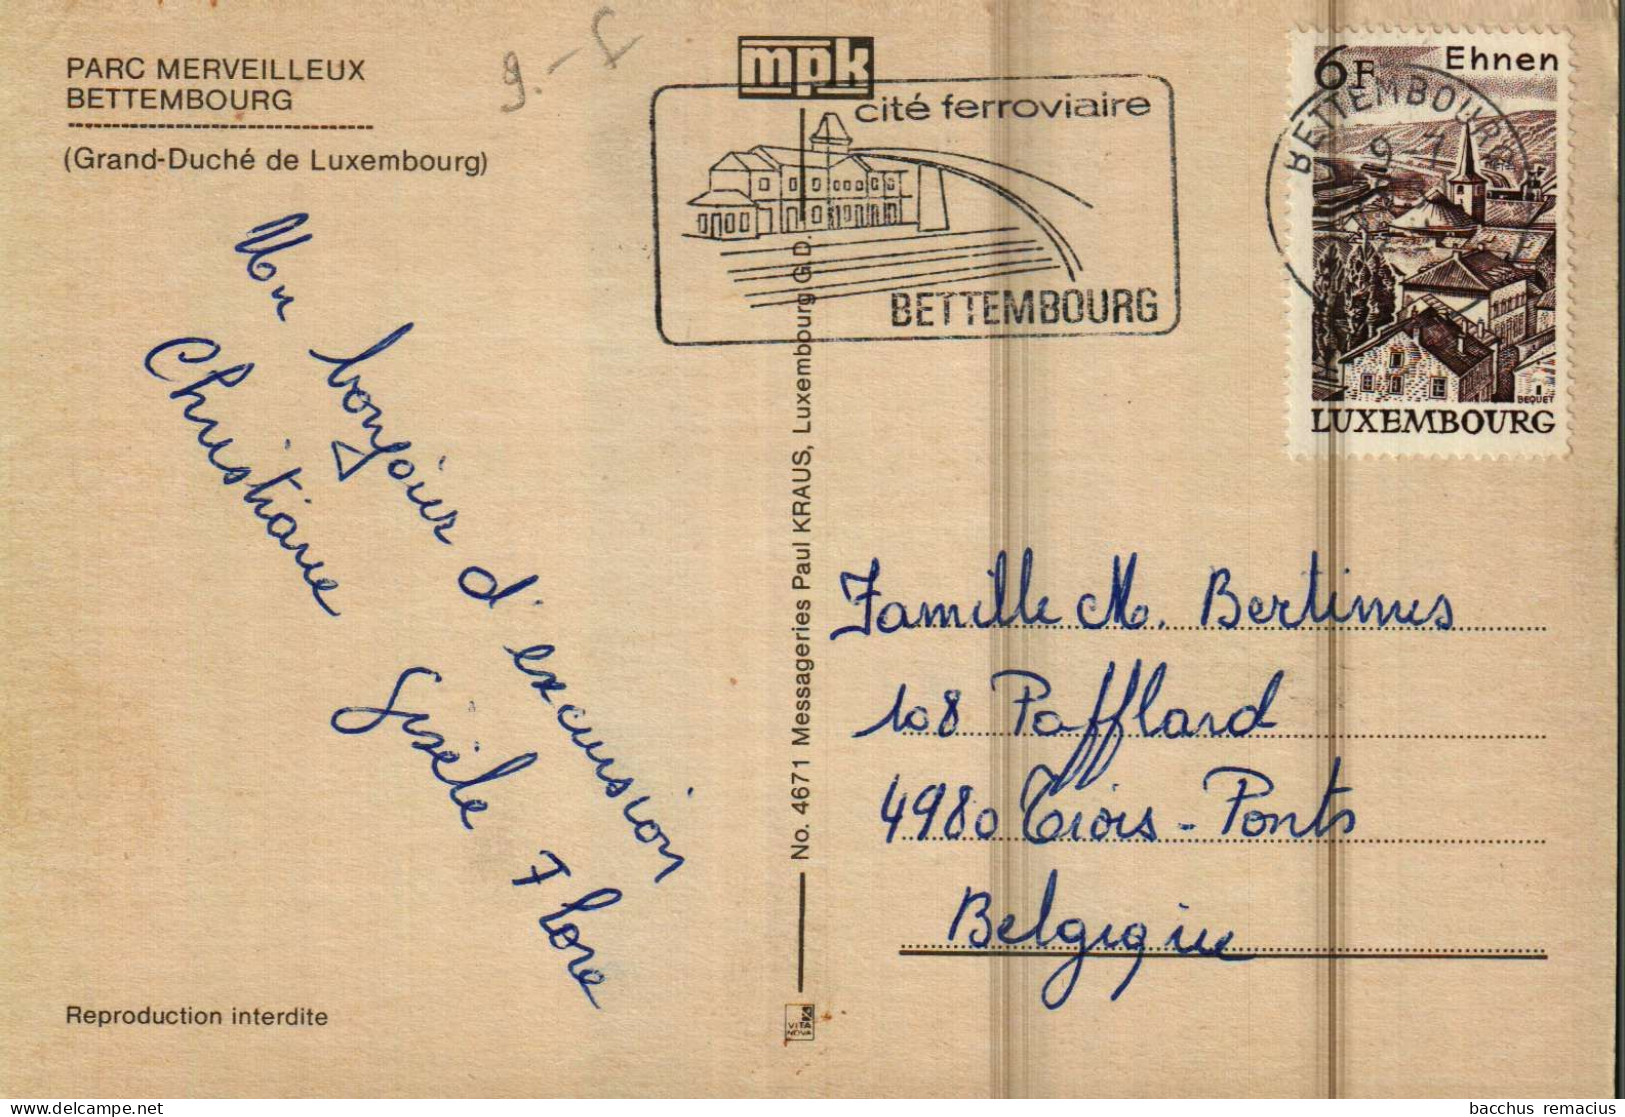 PARC MERVEILLEUX
BETTEMBOURG
(Grand-Duché de Luxembourg)
9.-
mpk
cité ferroviaire
BETTEMBOURG
6F
Ehnen
BETTEMBOURG
9 7
BEQUET
LUXEMBOURG
Un bonjour d'excursion
Christiane
Gisèle Flore
No. 4671 Messageries Paul KRAUS, Luxembourg G.D.
Famille M. Bertimes
108 Pafflard
4980 Trois-Ponts
Belgique
Reproduction interdite
VITA
NOVA
bacchus remacius